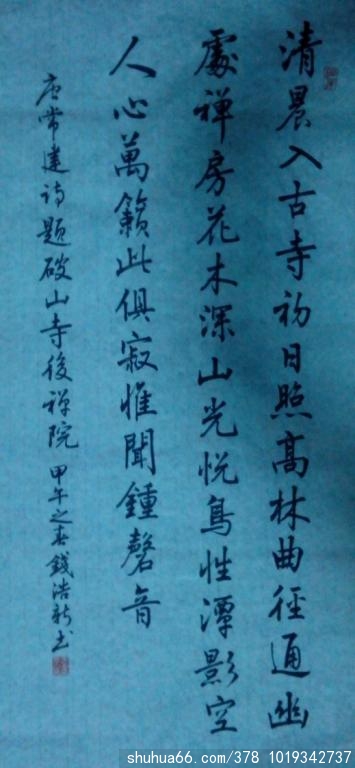 清晨入古寺初日照高林曲径通幽
處禅房花木深山光悦鳥性潭影空
人心萬籟此俱寂惟聞鍾磬音
唐常建詩題破山寺後禅院 甲午之春錢浩新书
shuhua66.com/378 1019342737